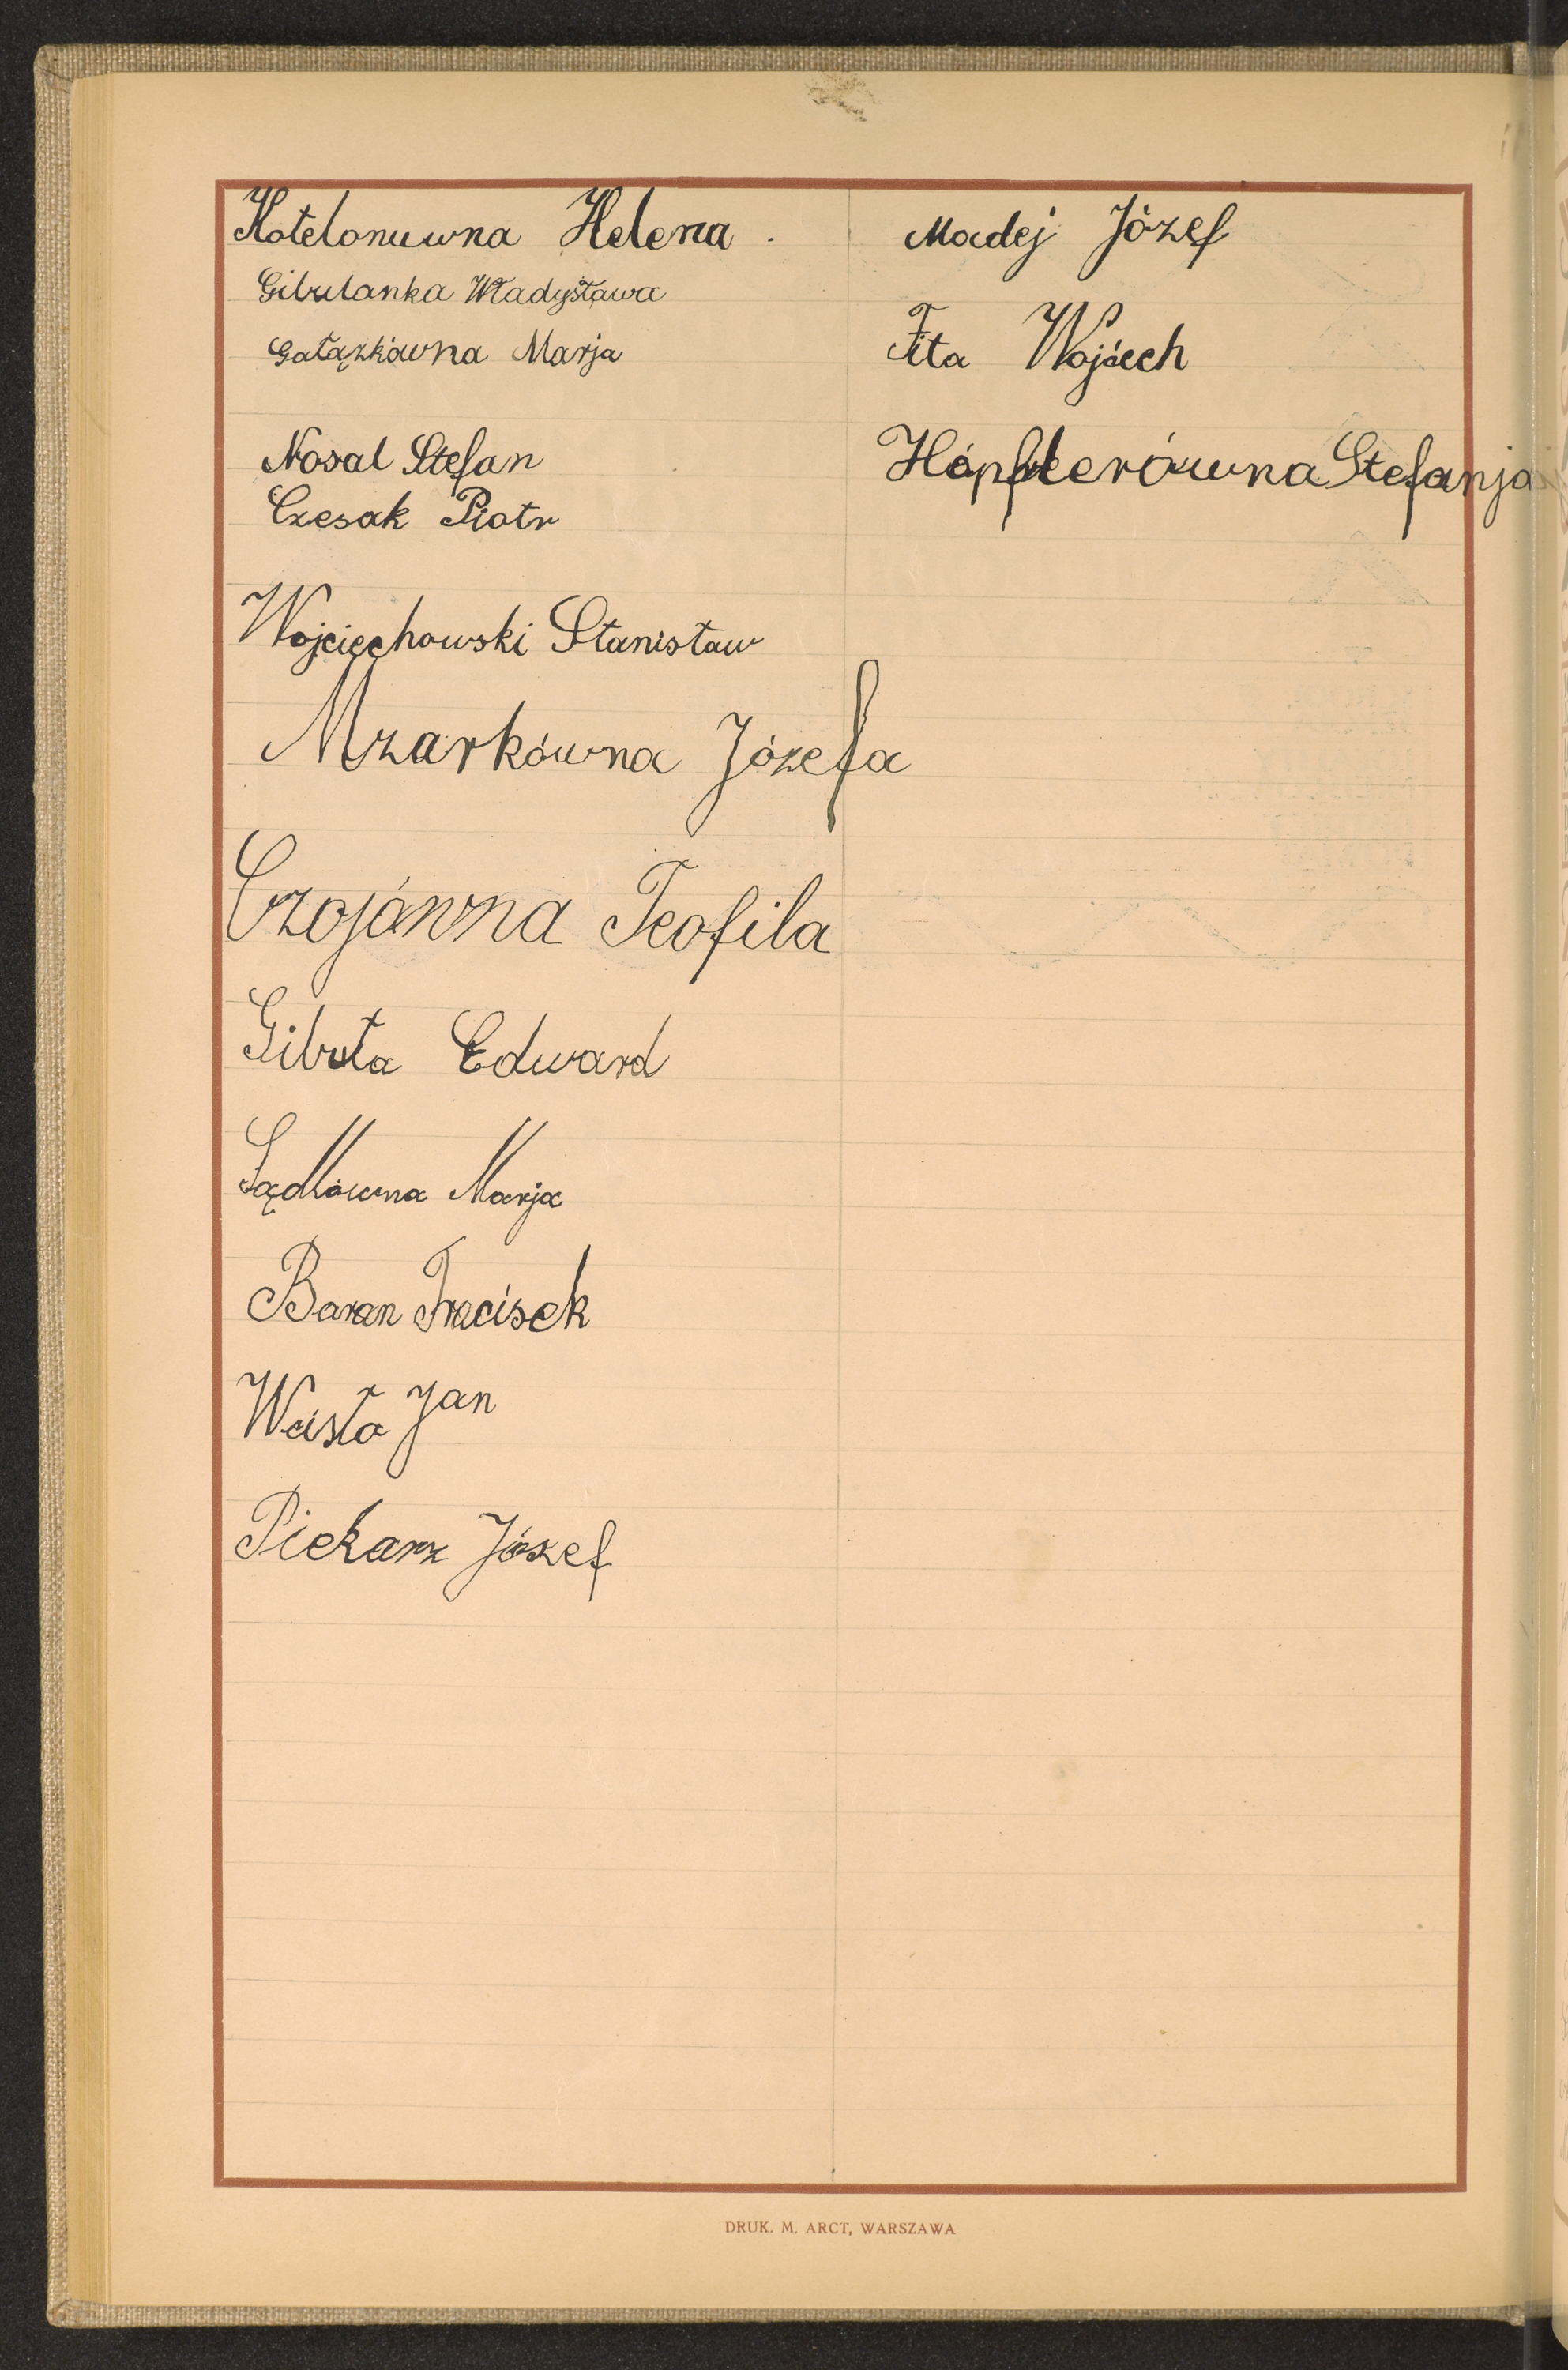 Kotelonuwna Helena.
Gibulanka Władysława
Gałązkówna Marja
Nosal Stefan
Czesak Piotr
Wojciechowski Stanisław
Mzarkówna Józefa
Czojówna Teofila
Gibuła Edward
Sądlówna Marja
Baran Fracisek
Weisło Jan
Piekarz Józef
Madej Józef
Fita Wojciech
Stefanja
DRUK. M. ARCT, WARSZAWA